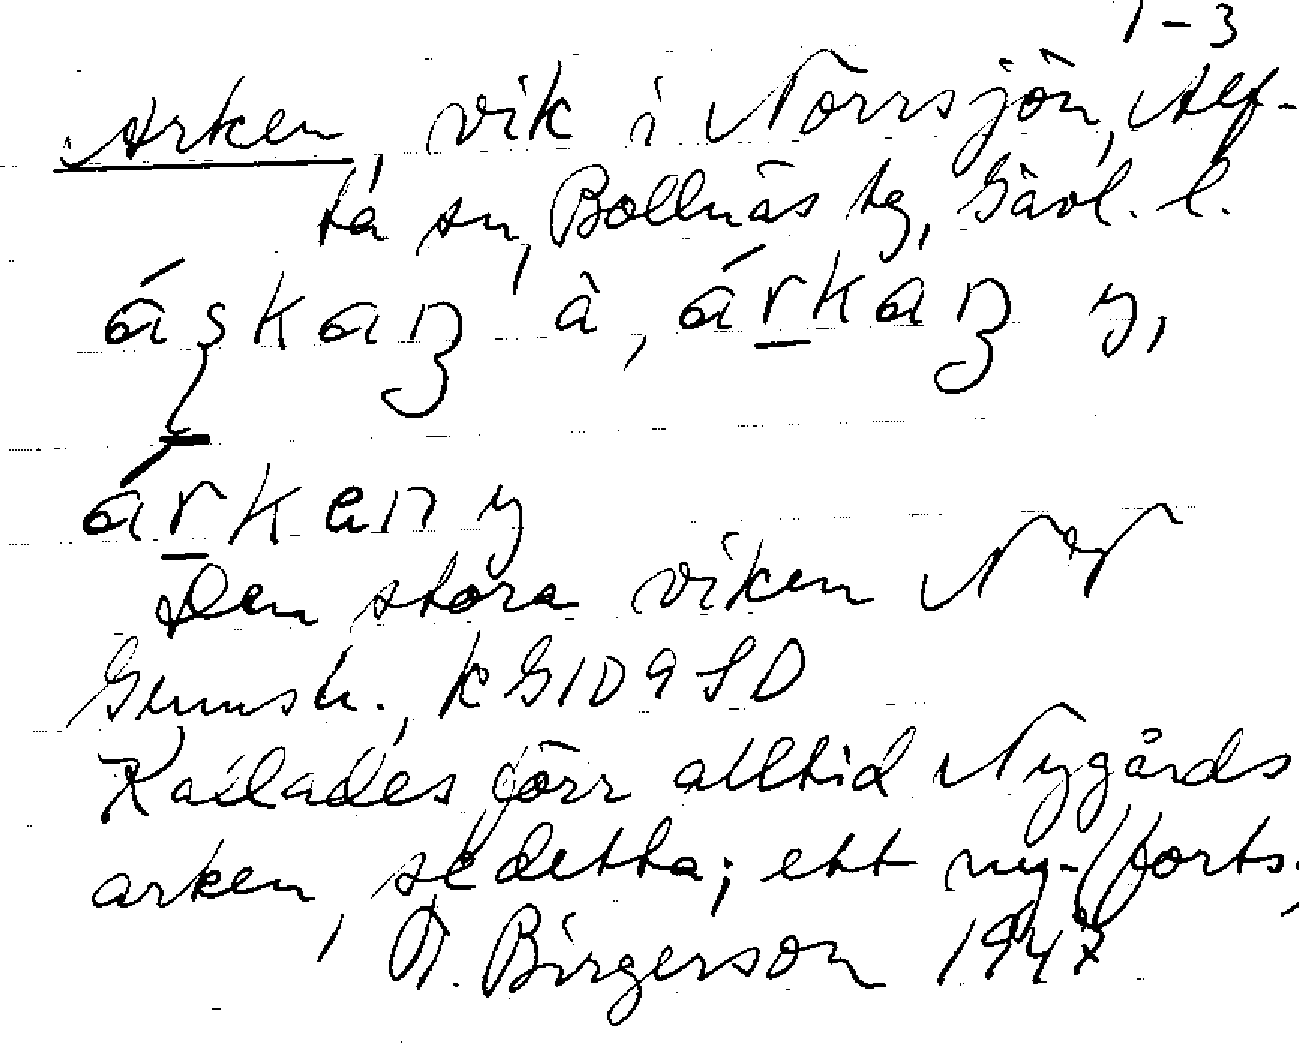 1-3
Arken, vik i Norrsjön, Alf-
ta sn, Bollnäs tg, Gävl. l.
áşkaꞑ à, árkaꞑ y,
árken y
Den stora viken N om N
Gunnsh., kG109SD
Kallades förr alltid Nygårds
arken, se detta; ett ny- (forts.
N. Birgerson 1947